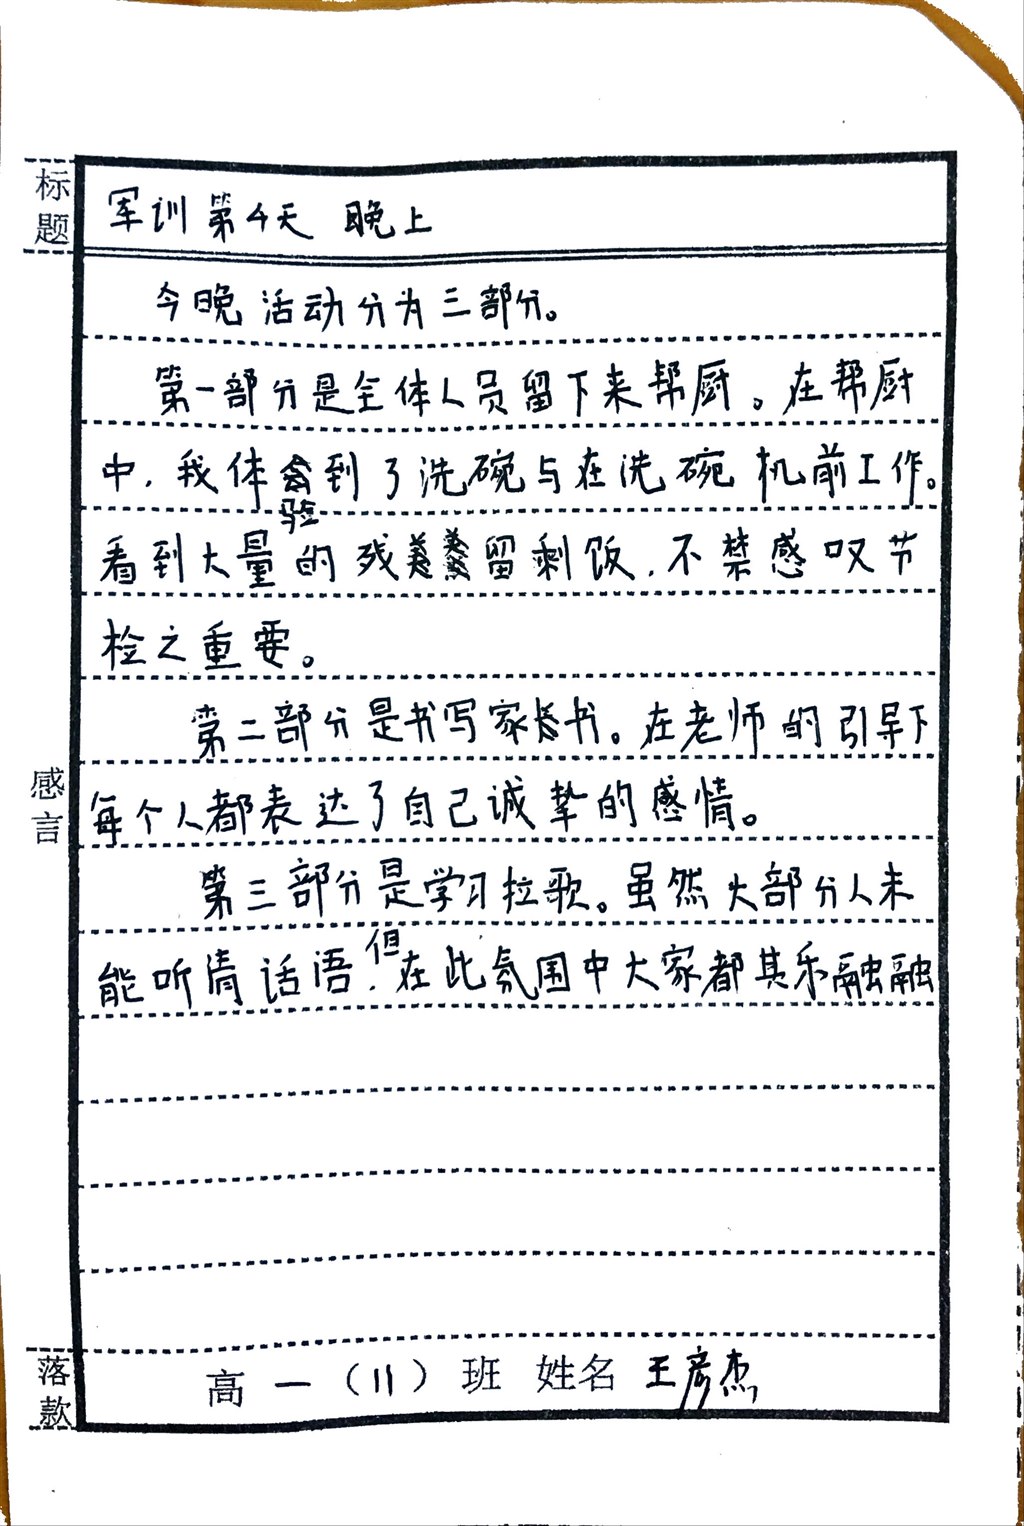 标题
军训第4天 晚上
今晚活动分为三部分。
第一部分是全体人员留下来帮厨。在帮厨
中，我体验到了洗碗与在洗碗机前工作。
看到大量的残留剩饭，不禁感叹节
检之重要。
第二部分是书写家长书。在老师的引导下
每个人都表达了自己诚挚的感情。
第三部分是学习拉歌。虽然大部分人未
能听清话语，但在此氛围中大家都其乐融融
感言
落款
高一（11）班 姓名 王彦杰